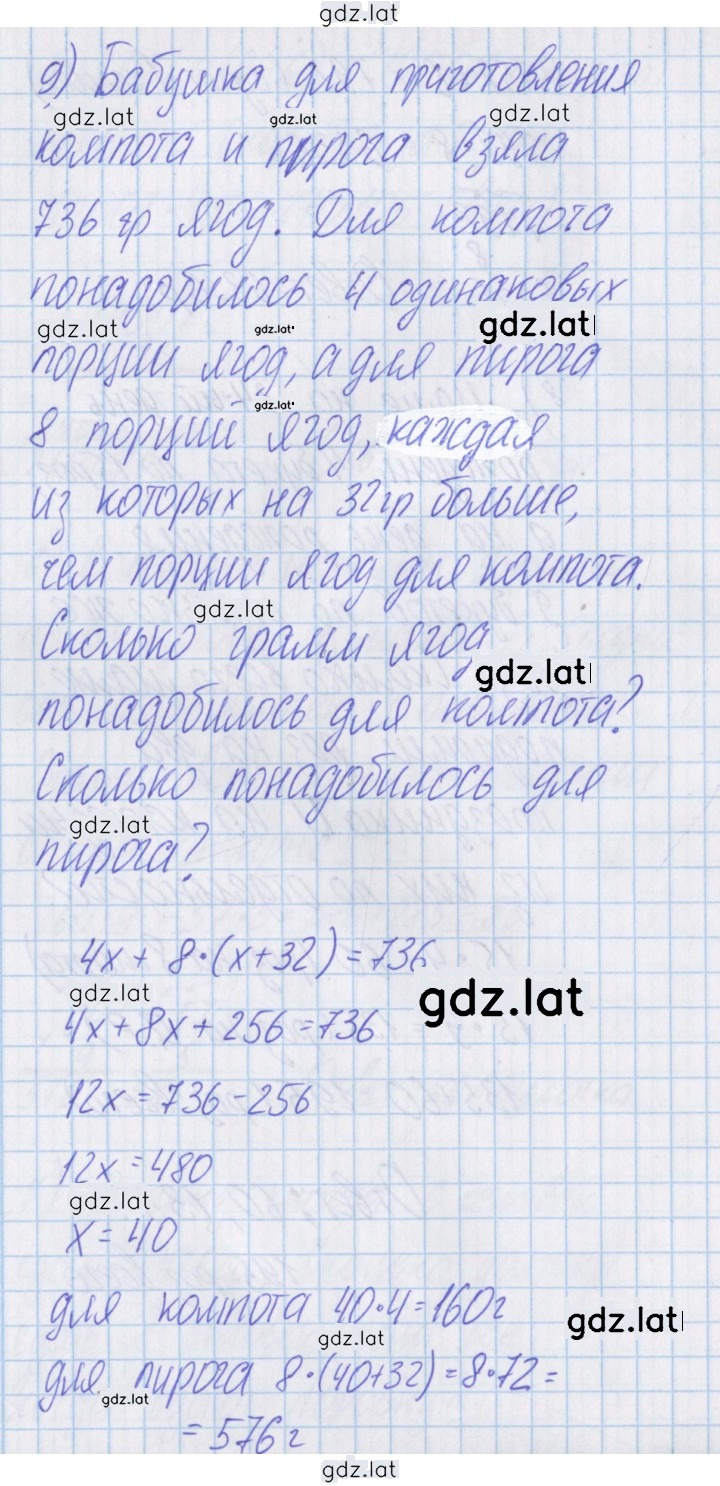 gdz.lat
9) Бабушка для приготовления
gdz.lat gdz.lat gdz.lat
компота и пирога взяла
736 гр ягод. Для компота
понадобилось 4 одинаковых
gdz.lat gdz.lat gdz.lat
порции ягод, а для пирога
gdz.lat
8 порций ягод, каждая
из которых на 32 гр больше,
чем порции ягод для компота.
gdz.lat
Сколько грамм ягод
gdz.lat
понадобилось для компота?
Сколько понадобилось для
gdz.lat
пирога?
4x + 8·(x+32) = 736
gdz.lat gdz.lat
4x + 8x + 256 = 736
12x = 736 - 256
12x = 480
gdz.lat
x = 40
для компота 40·4 = 160 г
gdz.lat gdz.lat
для пирога 8·(40+32) = 8·72 =
gdz.lat
= 576 г
gdz.lat